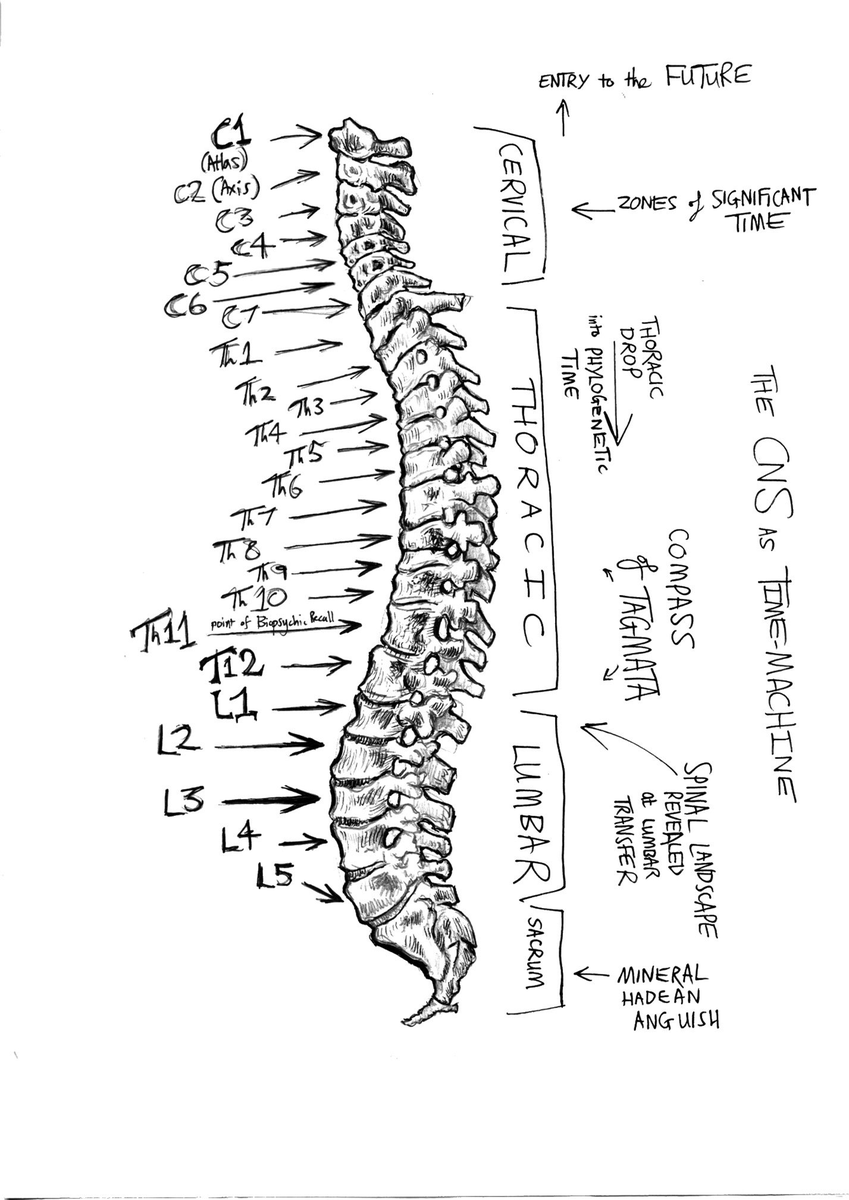 ENTRY to the FUTURE
C1
(Atlas)
C2 (Axis)
C3
C4
C5
C6
C7
Th1
Th2
Th3
Th4
Th5
Th6
Th7
Th8
Th9
Th10
Th11
point of Biopsychic Recall
T12
L1
L2
L3
L4
L5
CERVICAL
THORACIC
LUMBAR
SACRUM
ZONES of SIGNIFICANT
TIME
THORACIC
DROP
into PHYLOGENETIC
TIME
COMPASS
of TAGMATA
SPINAL LANDSCAPE
REVEALED
at LUMBAR
TRANSFER
MINERAL
HADEAN
ANGUISH
THE CNS AS TIME-MACHINE